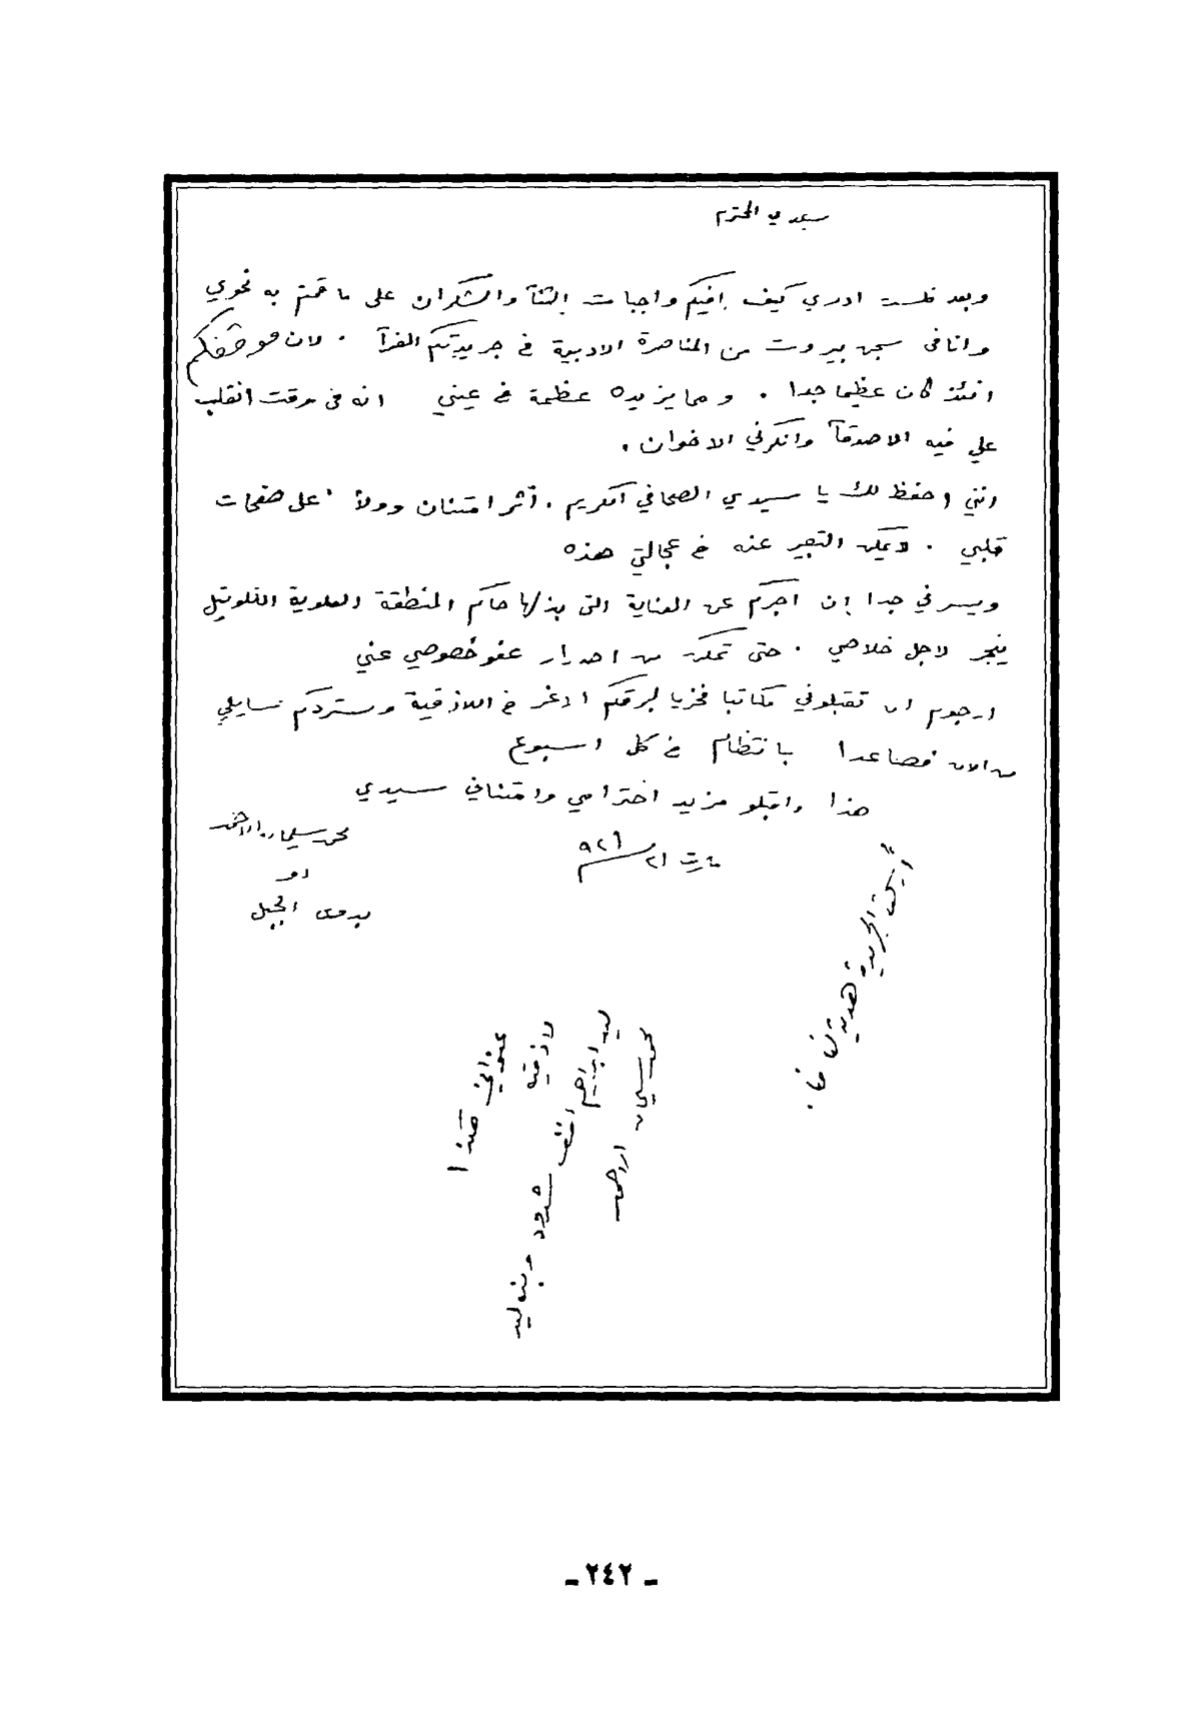 سيدي المحترم
وبعد فلست ادري كيف افيكم واجبات الثنآ والشكران على ما قمتم به نحوي
وانا في سجن بيروت من المناصرة الادبية في جريدتكم الغرآ . لان موقفكم
انئذ كان عظيما جدا . ومما يزيده عظمة في عيني انه في وقت انقلب
علي فيه الاصدقآ وانكرني الاخوان .
انني احفظ لك يا سيدي الصحافي الكريم . أثر امتنان وولآ على صفحات
قلبي . لا يمكن التعبير عنه في عجالتي هذه
ويسرني جدا ان اخبركم عن العناية التي بذلها حاكم المنطقة العلوية
لاجل خلاصي . حتى تمكن من اصدار عفو خصوصي عني
ارجوكم ان تقبلوني مكاتبا فخريا لبرقكم الاغر في اللاذقية وستردكم رسايلي
من الان فصاعدا بانتظام في كل اسبوع
هذا واقبلو مزيد احترامي وامتناني سيدي
مارت ٢١ ٩٢٦
محمد سليمان الاحمد
او
بدوي الجبل
الجريدة هدية
عنواني هكذا
لاذقيه
ابراهيم
محمد سليمان الاحمد
ـ ٢٤٢ ـ